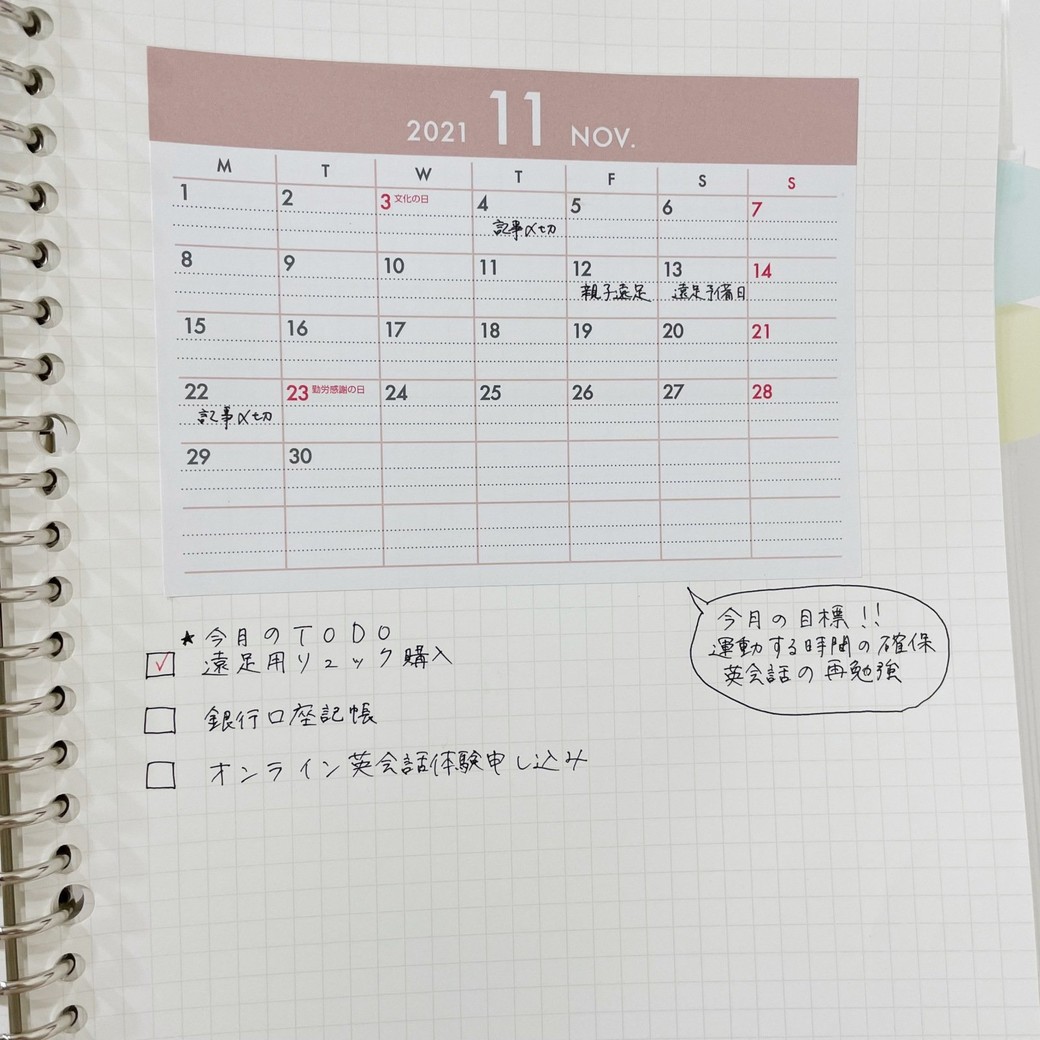 2021 11 NOV.
M T W T F S S
1 2 3 文化の日 4 5 6 7
記事〆切
8 9 10 11 12 13 14
親子遠足 遠足予備日
15 16 17 18 19 20 21
22 23 勤労感謝の日 24 25 26 27 28
記事〆切
29 30
★今月のTODO
遠足用リュック購入
銀行口座記帳
オンライン英会話体験申し込み
今月の目標!!
運動する時間の確保
英会話の再勉強